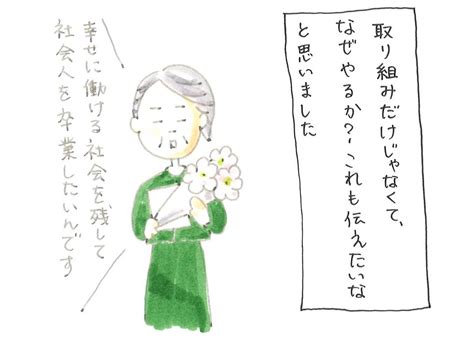 取り組みだけじゃなくて、
なぜやるか？これも伝えたいな
と思いました
幸せに働ける社会を、残して
社会人を卒業したいんです